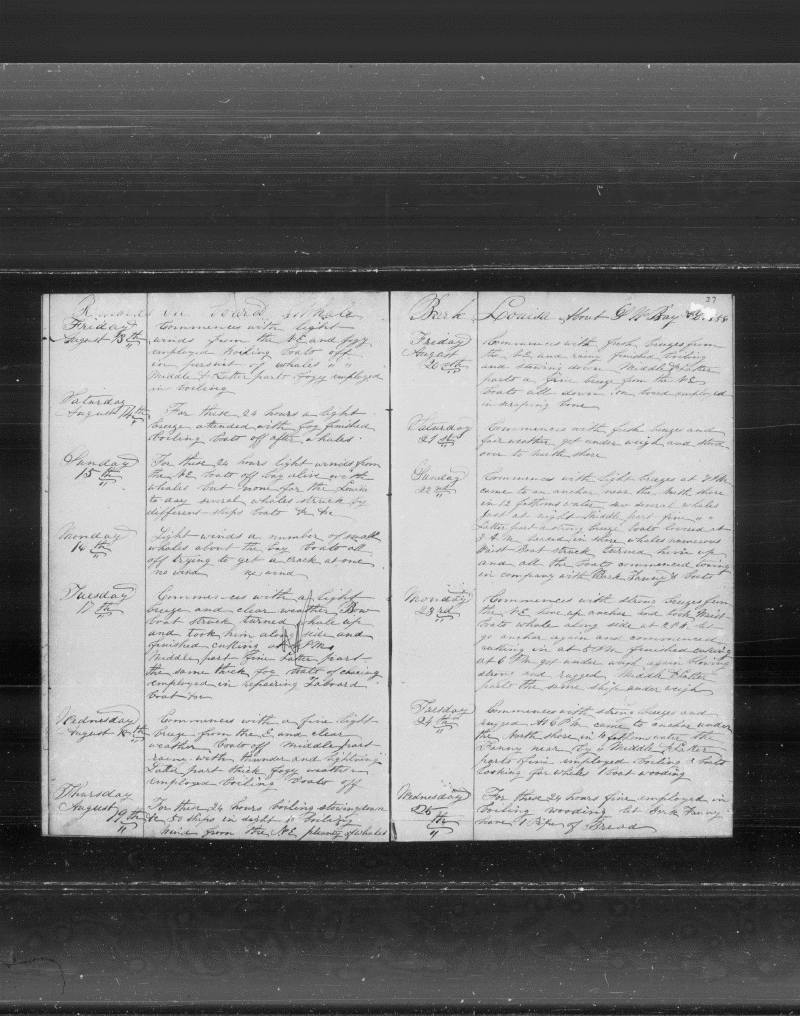 Remarks on board Whale
Friday
August 13th
Commences with light
winds from the NE and foggy
employed boiling boats off
in pursuit of whales " "
Middle & Latter parts foggy employed
in boiling
Saturday
August 14th
For these 24 hours a light
breeze attended with fog finished
boiling boats off after whales
Sunday
15th
For these 24 hours light winds from
the NE boats off bay alive with
whales but none for the Louisa
to day several whales struck by
different ships boats &c &c
Monday
16th
Light winds a number of small
whales about the bay boats all
off trying to get a crack at one
no wind no wind
Tuesday
17th
Commences with a light
breeze and clear weather Bow
boat struck turned whale up
and took him along side and
finished cutting at PM
Middle part fine Latter part
the same thick fog boats off chasing
employed in repairing Larboard
boat &c
Wednesday
August 18th
Commences with a fine light
breeze from the E and clear
weather boats off Middle part
rainy with thunder and lightning
Latter part thick fogy weather
employed boiling boats off
Thursday
August
19th
For these 24 hours boiling stowing down
&c 50 ships in sight boiling
wind from the NE plenty of whales
37
Bark Louisa About S W Bay
Friday
August
20th
Commences with fresh breezes from
the NE and rainy finished boiling
and stowing down Middle & Latter
parts a fine breeze from the NE
boats all down on board employed
in scraping bone
Saturday
21st
Commences with fresh breezes and
fair weather got under weigh and stood
over to North shore
Sunday
22nd
Commences with light breezes at PM
came to an anchor near the North shore
in 12 fathoms water saw several whales
just at night Middle part fine " "
Latter part a strong breeze boats lowered at
3 A.M. headed in shore whales numerous
Waist Boat struck turned him up
and all the boats commenced towing
in company with Bark Fanny's boats
Monday
23rd
Commences with strong breezes from
the NE hove up anchor and took Waist
boats whale along side at 2 PM let
go anchor again and commenced
cutting in at 5 PM finished cutting
at 6 PM got under weigh again blowing
strong and rugged Middle & Latter
parts the same ship under weigh
Tuesday
24th
Commences with strong breezes and
rugged At 6 P.M. came to anchor under
the North shore in fathoms water the
Fanny near by Middle & Latter
parts fine employed boiling 3 boats
looking for whales 1 boat wooding
Wednesday
25
th
For these 24 hours fine employed in
boiling wooding let Bark Fanny
have 1 of Bread